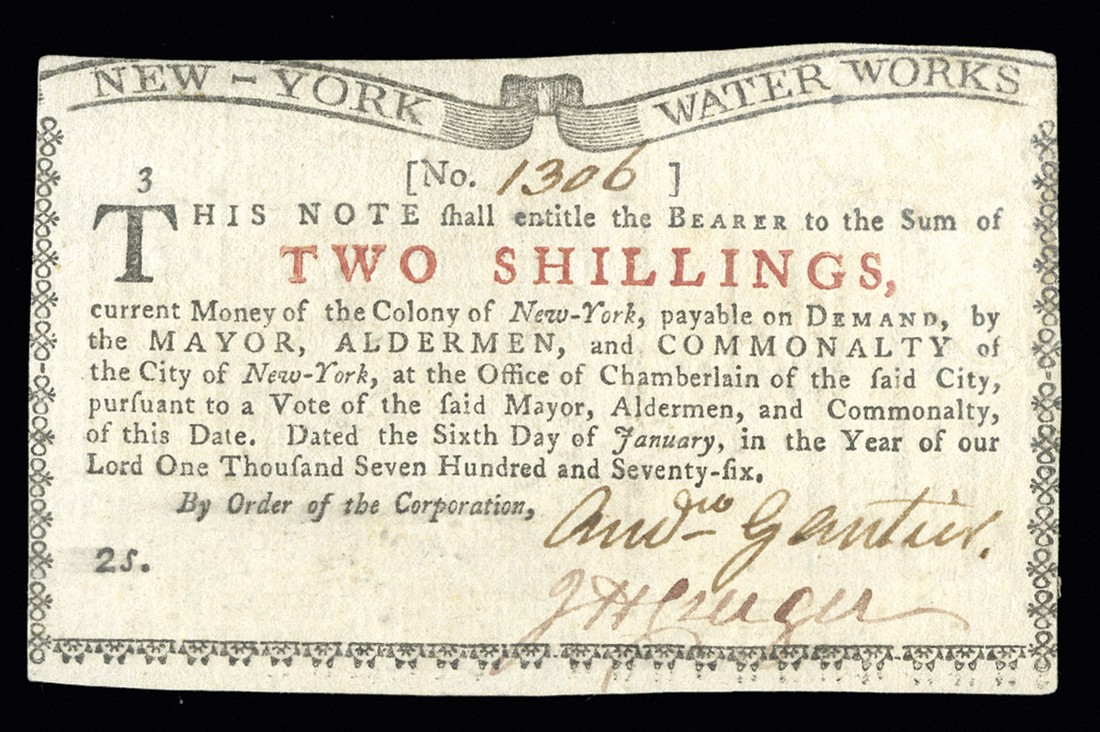 NEW-YORK WATER WORKS
[No. 1306 ]
3
THIS NOTE ſhall entitle the BEARER to the Sum of
TWO SHILLINGS,
current Money of the Colony of New-York, payable on DEMAND, by
the MAYOR, ALDERMEN, and COMMONALTY of
the City of New-York, at the Office of Chamberlain of the ſaid City,
purſuant to a Vote of the ſaid Mayor, Aldermen, and Commonalty,
of this Date. Dated the Sixth Day of January, in the Year of our
Lord One Thouſand Seven Hundred and Seventy-ſix.
By Order of the Corporation,
Andrw Gautier.
2s.
J H Cruger